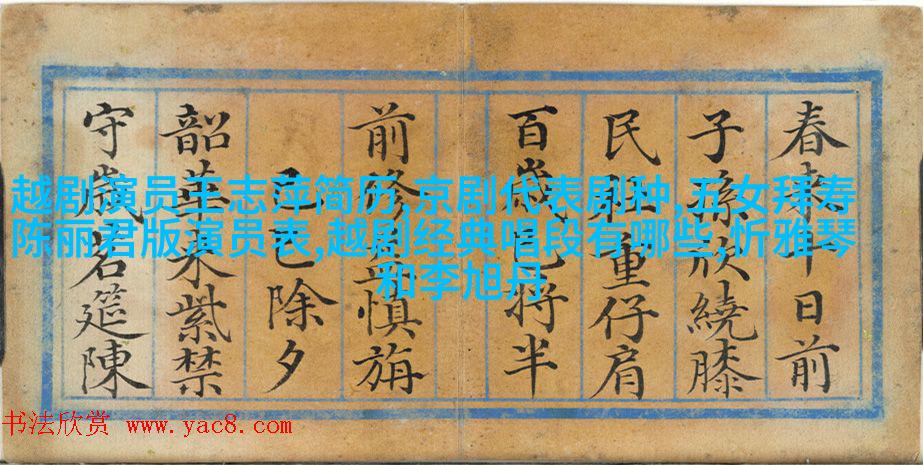 春來十日前
子孫欣繞膝
民 重仔肩
百歲已將半
前修益慎旃
己巳除夕
韶華來紫禁
守歲 筵陳
越剧演员王志萍简历,京剧代表剧种,五女拜寿
陈丽君版演员表,越剧经典唱段有哪些,忻雅琴
和李旭丹
书法欣赏 www.yac8.com